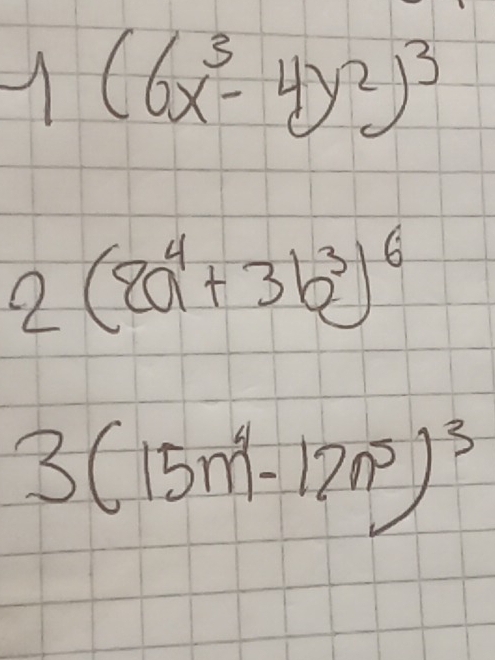 1 (6x³ - 4y²)³
2 (8a⁴ + 3b³)⁶
3 (15m⁴ - 12n⁵)³